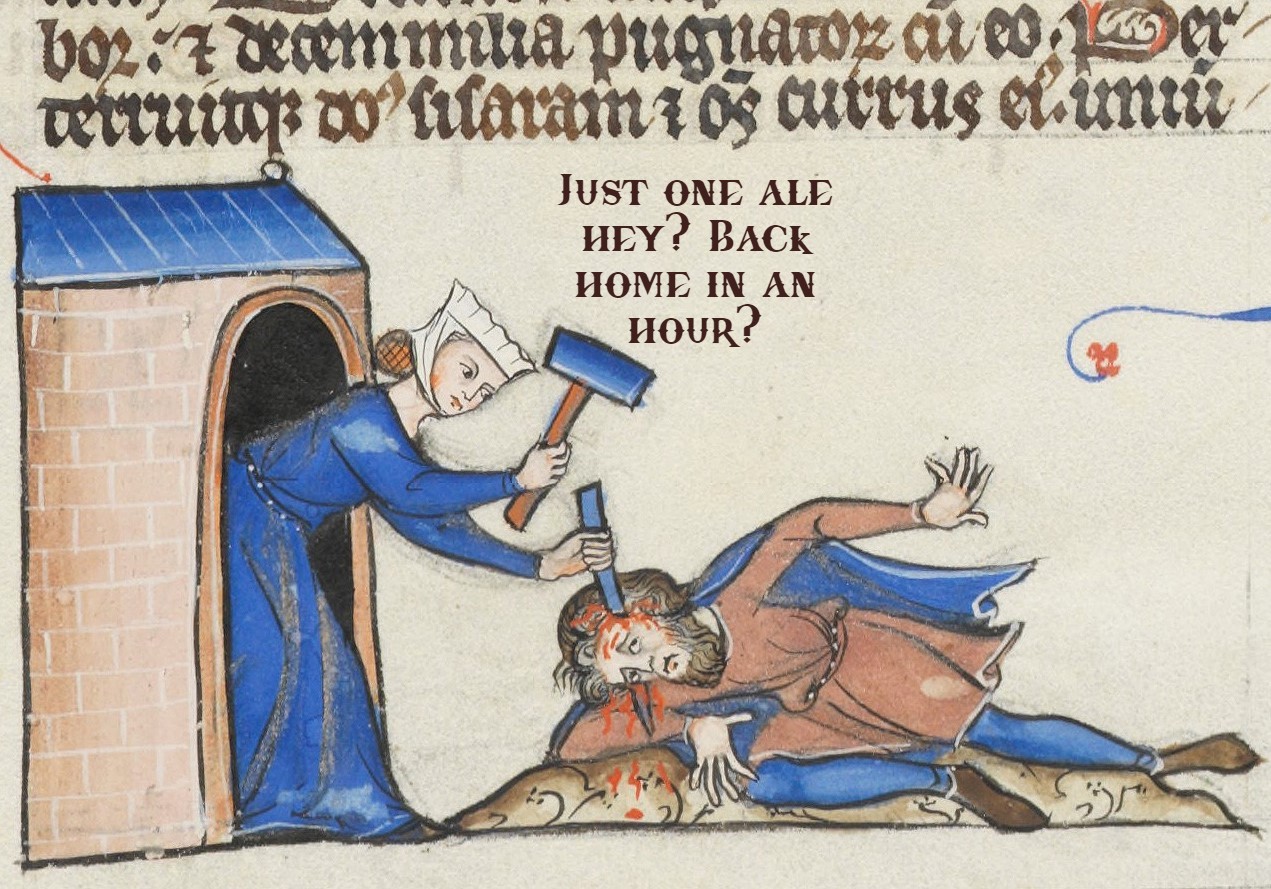 boꝝ. ⁊ decem milia pugnatoꝝ cū eo. Per
terruitqꝫ dn̄s sisaram ⁊ oēs currus eiꝰ. uniū
JUST ONE ALE
HEY? BACK
HOME IN AN
HOUR?